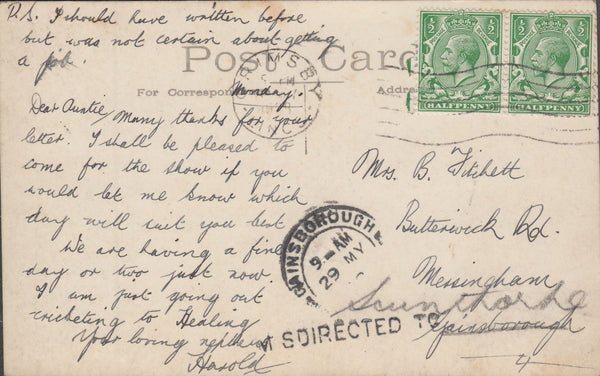 P.S. I should have written before
but was not certain about getting
a job.
Post Card
For Correspon
Addre
GRIMSBY
LINCS
Monday.
Dear Auntie, Many thanks for your
letter. I shall be pleased to
come for the show if you
would let me know which
day will suit you best
We are having a fine
day or two just now.
I am just going out
cricketing to Healing
Your loving nephew
Harold
½ ½
HALFPENNY HALFPENNY
Mrs. B. Fitchett
Butterwick Rd.
Messingham
Scunthorpe
Gainsborough
GAINSBOROUGH
9 - AM
29 MY
M SDIRECTED TO
4